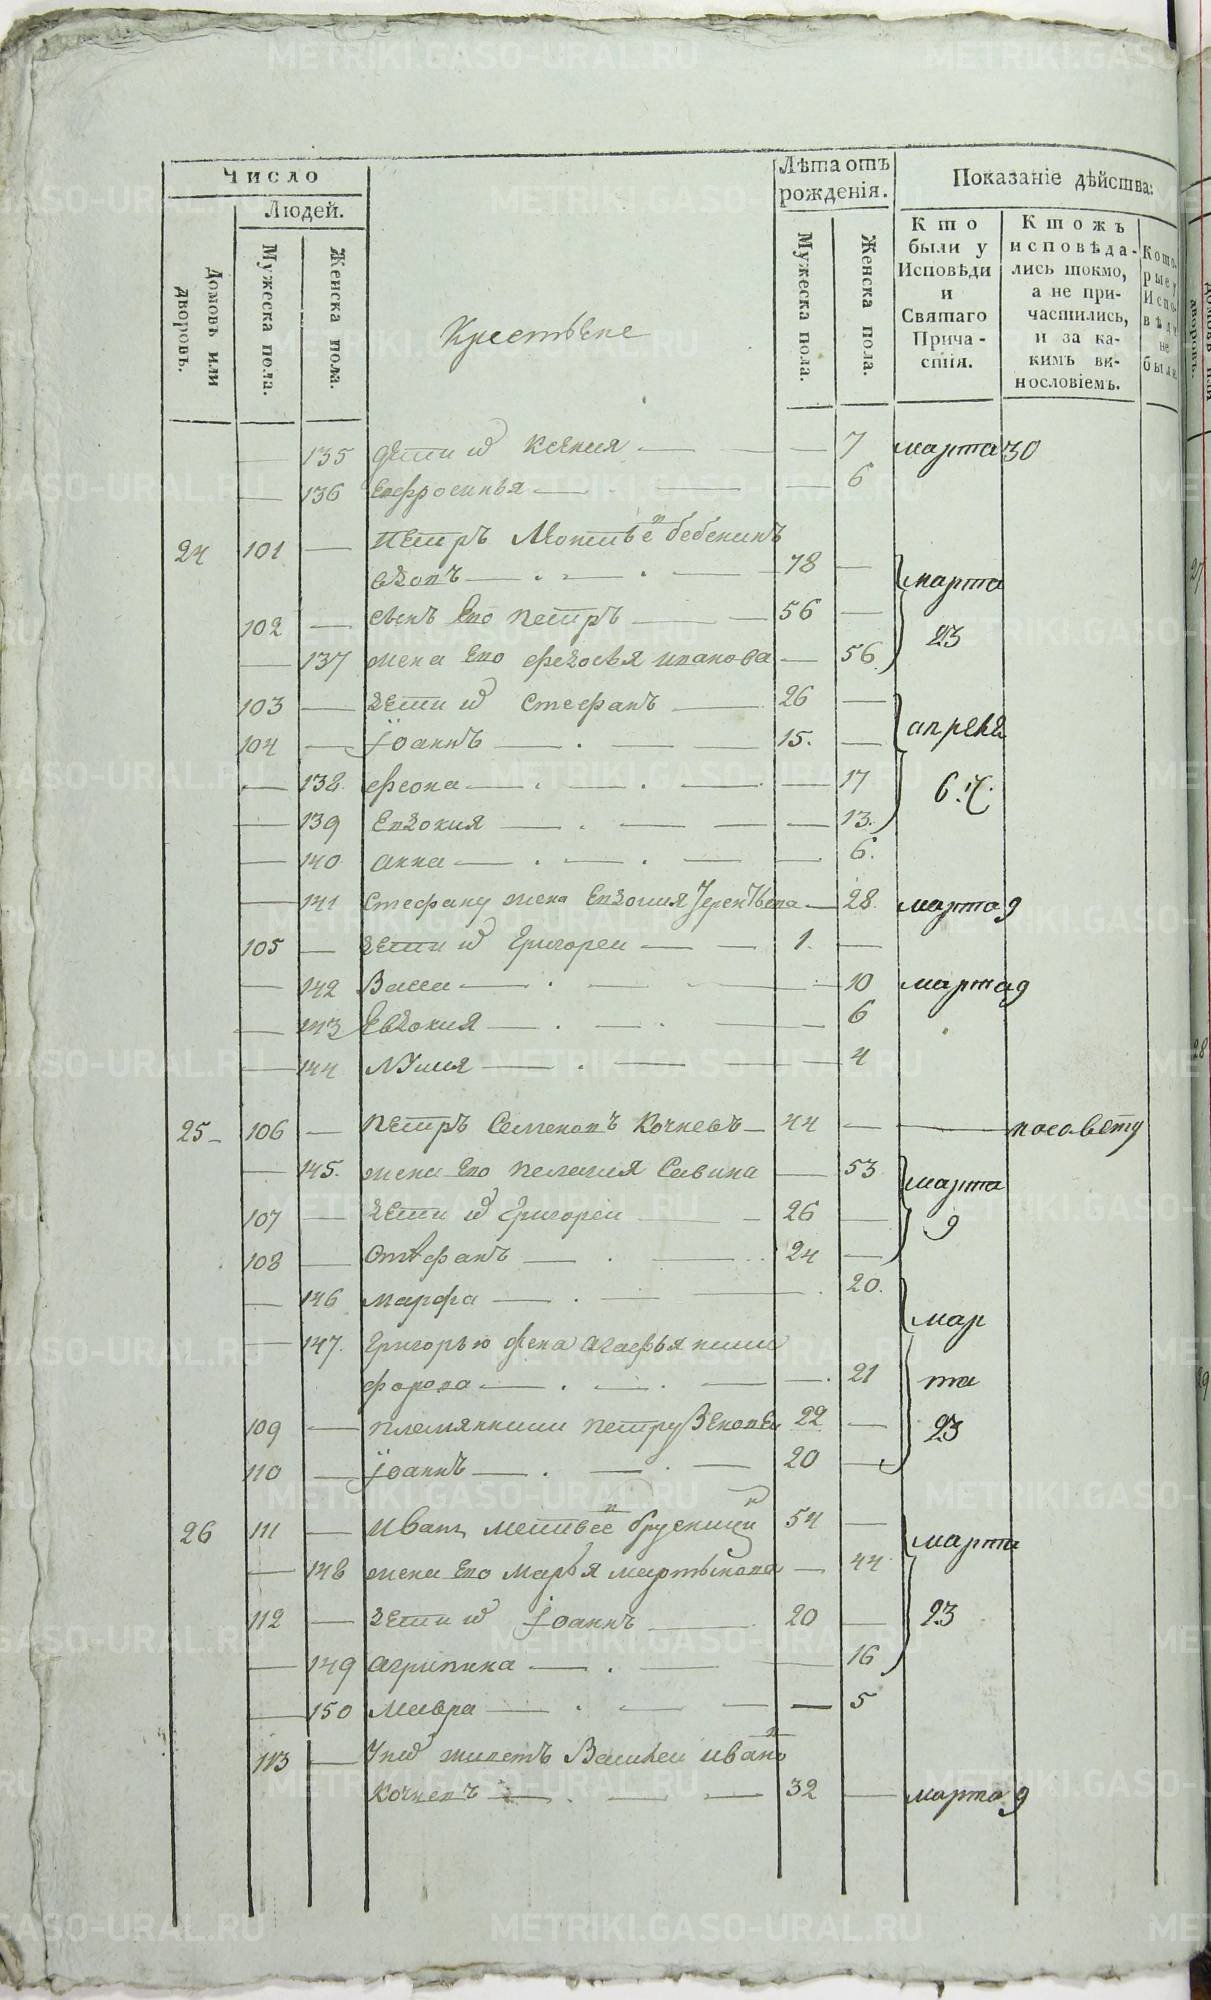 Число
Людей.
Домовъ или дворовъ.
Мужеска пола.
Женска пола.
Крестьяне
Лѣта отъ рожденія.
Мужеска пола.
Женска пола.
Показаніе дѣйства:
Кто были у Исповѣди и Святаго Причастія.
Ктожъ исповѣдались токмо, а не причастились, и за какимъ винословіемъ.
Которые у Исповѣди не были
— 135 дѣти их Ксения — — 7 марта 30
— 136 Евфросинья — — 6
24 101 — Петръ Матвѣевъ Бебенинъ
вдовъ — 78 —
марта 23
102 — сынъ Ево Петръ — 56 —
— 137 жена Ево Федосья Иванова — 56
103 — дѣти их Стефанъ — 26 —
апреля 6 ч.
104 — Iоаннъ — 15. —
— 138. Феона — — 17
— 139 Евдокия — — 13.
— 140 Анна — — 6.
— 141 Стефану жена Евдокия — 28. марта 9
105 — дѣти их Григореи — 1. —
— 142 Васса — — 10 марта 9
— 143 Евдокия — — 6
— 144 — — 4
25 106 — Петръ Семеновъ Кочневъ — 44 — — по совѣту
— 145. жена Ево Пелагия Савина — 53
марта 9
107 — дѣти их Григореи — 26 —
108 — Стефанъ — 24 —
— 146 Марфа — 20.
марта 23
— 147. Григорью жена Агафья Ники
форова — — 21
109 — племянники Петру Зеновеи 22 —
110 — Iоаннъ — 20 —
26 111 — Иванъ Матвѣевъ 54 —
марта 23
— 148 жена Ево Марья Мартынова — 44
112 — дѣти их Iоаннъ — 20 —
— 149 Агрипина — — 16
— 150 Мавра — — 5
113 — У них живетъ Василеи Ивановъ
Кочневъ — 32 — марта 9
METRIKI.GASO-URAL.RU